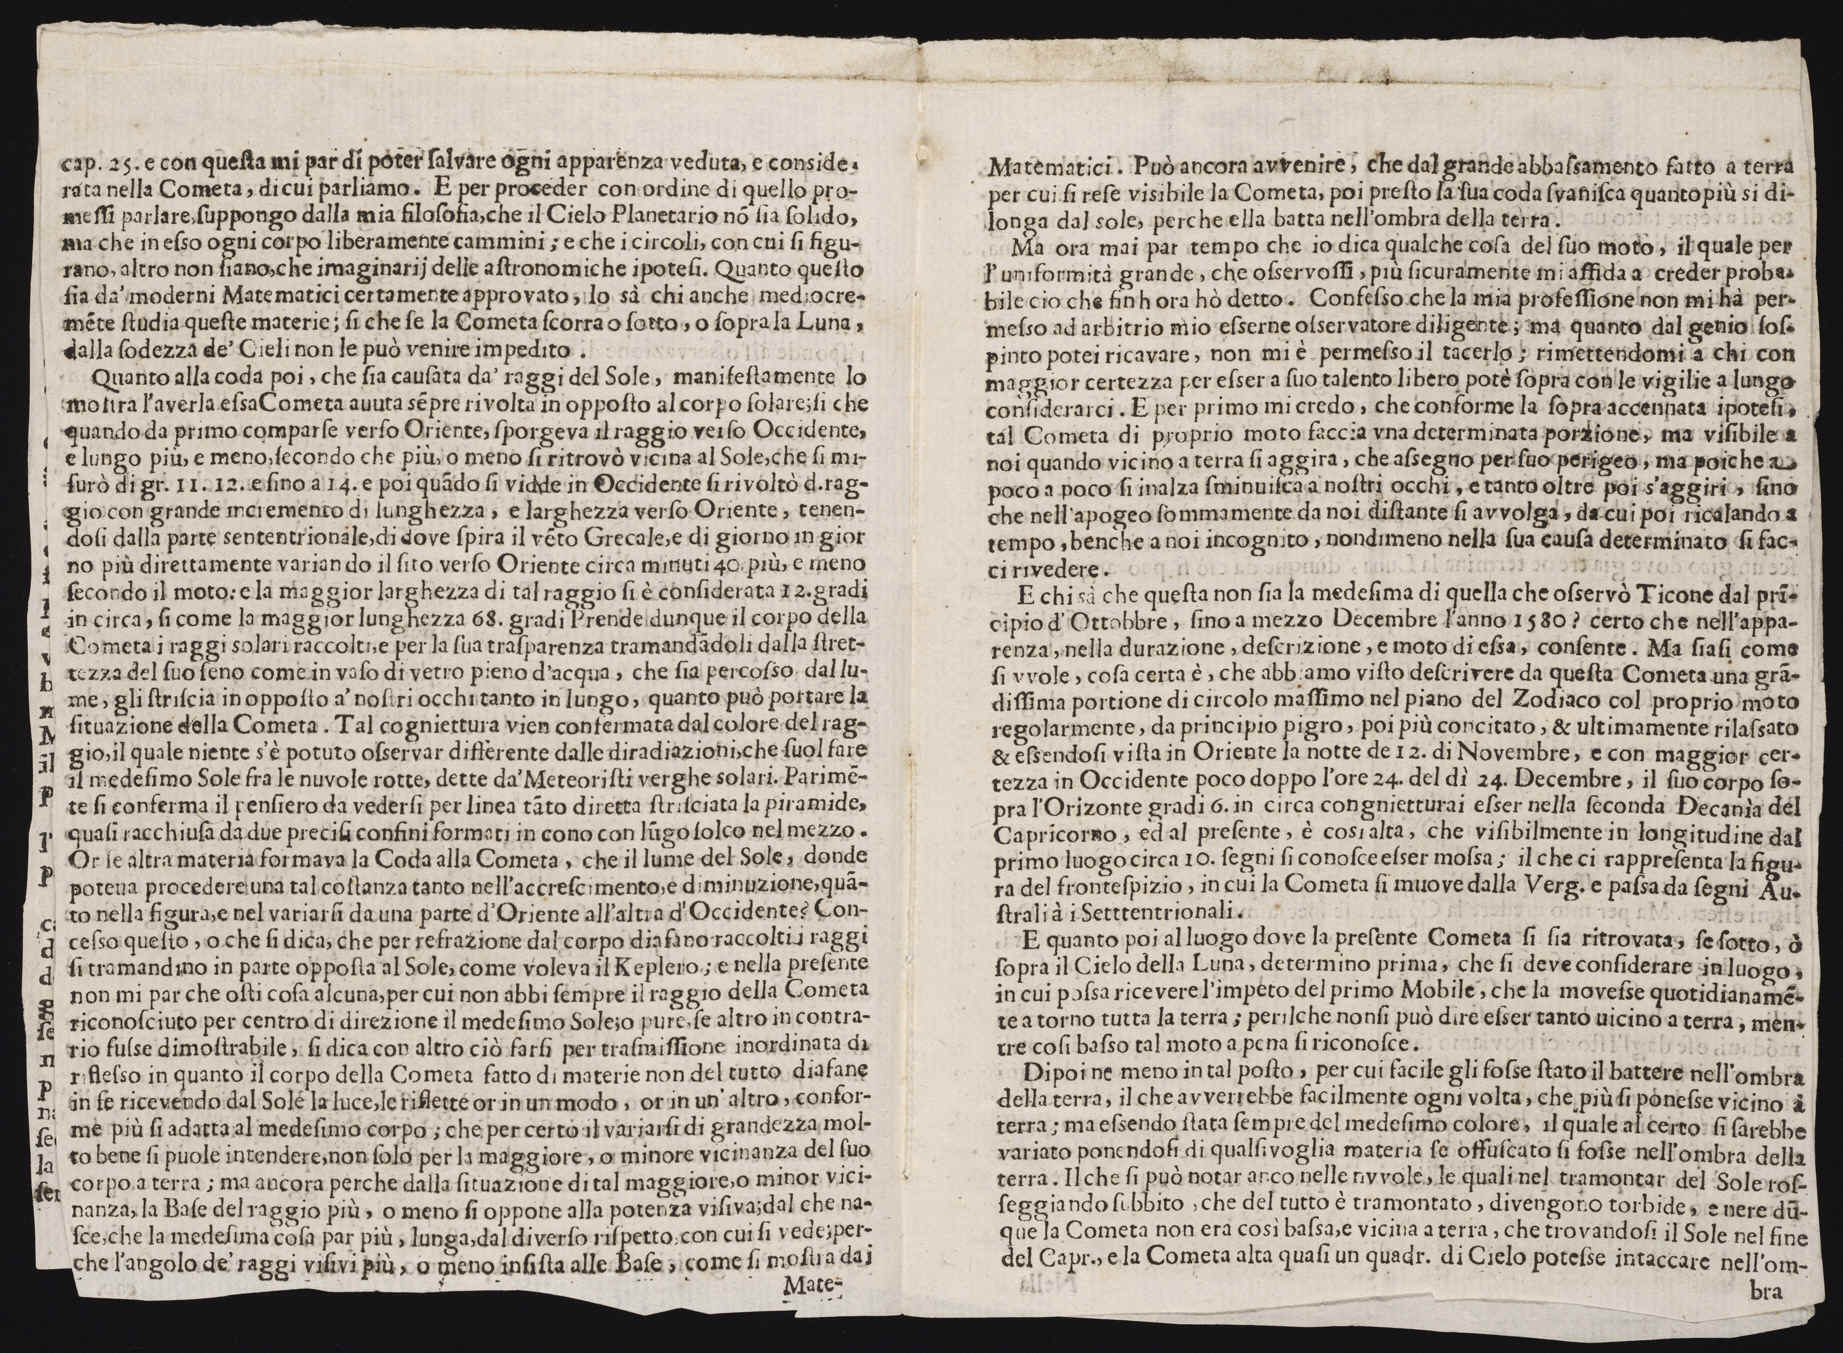 cap. 25. e con queſta mi par di poter ſalvare ogni apparenza veduta, e conside-
rata nella Cometa, di cui parliamo. E per proceder con ordine di quello pro-
meſſi parlare, ſuppongo dalla mia filoſofia, che il Cielo Planetario nõ ſia ſolido,
ma che in eſso ogni corpo liberamente cammini; e che i circoli, con cui ſi figu-
rano, altro non ſiano, che imaginarij delle aſtronomiche ipoteſi. Quanto queſto
ſia da' moderni Matematici certamente approvato, lo sà chi anche mediocre-
mẽte ſtudia queſte materie; ſi che ſe la Cometa ſcorra o ſotto, o ſopra la Luna,
dalla ſodezza de' Cieli non le può venire impedito.
Quanto alla coda poi, che ſia cauſata da' raggi del Sole, manifeſtamente lo
moſtra l'averla eſsa Cometa avuta sẽpre rivolta in oppoſto al corpo ſolare; ſi che
quando da primo comparſe verſo Oriente, ſporgeva il raggio verſo Occidente,
e lungo più, e meno, ſecondo che più, o meno ſi ritrovò vicina al Sole, che ſi mi-
ſurò di gr. 11. 12. e ſino a 14. e poi quãdo ſi vidde in Occidente ſi rivoltò d. rag-
gio con grande incremento di lunghezza, e larghezza verſo Oriente, tenen-
doſi dalla parte sententrionale, di dove ſpira il vẽto Grecale, e di giorno in gior
no più direttamente variando il ſito verſo Oriente circa minuti 40. più, e meno
ſecondo il moto: e la maggior larghezza di tal raggio ſi è conſiderata 12. gradi
in circa, ſi come la maggior lunghezza 68. gradi Prende dunque il corpo della
Cometa i raggi solari raccolti, e per la ſua traſparenza tramandãdoli dalla ſtret-
tezza del ſuo ſeno come in vaſo di vetro pieno d'acqua, che ſia percoſso dal lu-
me, gli ſtriſcia in oppoſto a' noſtri occhi tanto in lungo, quanto può portare la
ſituazione della Cometa. Tal cogniettura vien confermata dal colore del rag-
gio, il quale niente s'è potuto oſservar differente dalle diradiazioni, che ſuol fare
il medeſimo Sole fra le nuvole rotte, dette da' Meteoriſti verghe solari. Parimẽ-
te ſi conferma il penſiero da vederſi per linea tãto diretta ſtriſciata la piramide,
quaſi racchiuſa da due preciſi confini formati in cono con lũgo ſolco nel mezzo.
Or ſe altra materia formava la Coda alla Cometa, che il lume del Sole, donde
poteua procedere una tal coſtanza tanto nell'accreſcimento, e diminuzione, quã-
to nella figura, e nel variarſi da una parte d'Oriente all'altra d'Occidente? Con-
ceſso queſto, o che ſi dica, che per refrazione dal corpo diafano raccolti i raggi
ſi tramandino in parte oppoſta al Sole, come voleva il Keplero; e nella preſente
non mi par che oſti coſa alcuna, per cui non abbi ſempre il raggio della Cometa
riconoſciuto per centro di direzione il medeſimo Sole; o pure, ſe altro in contra-
rio fuſse dimoſtrabile, ſi dica con altro ciò farſi per traſmiſſione inordinata di
rifleſso in quanto il corpo della Cometa fatto di materie non del tutto diafane
in ſe ricevendo dal Sole la luce, le riflette or in un modo, or in un' altro, confor-
me più ſi adatta al medeſimo corpo; che per certo il variarſi di grandezza mol-
to bene ſi puole intendere, non ſolo per la maggiore, o minore vicinanza del ſuo
corpo a terra; ma ancora perche dalla ſituazione di tal maggiore, o minor vici-
nanza, la Baſe del raggio più, o meno ſi oppone alla potenza viſiva; dal che na-
ſce, che la medeſima coſa par più, lunga, dal diverſo riſpetto con cui ſi vede; per-
che l'angolo de' raggi viſivi più, o meno inſiſta alle Baſe, come ſi moſtra dai
Mate-
Matematici. Può ancora avvenire, che dal grande abbaſsamento fatto a terra
per cui ſi reſe visibile la Cometa, poi preſto la ſua coda ſvaniſca quantopiù si di-
longa dal sole, perche ella batta nell'ombra della terra.
Ma ora mai par tempo che io dica qualche coſa del ſuo moto, il quale per
l' uniformità grande, che oſservoſſi, più ſicuramente mi affida a creder proba-
bile cio che finh ora hò detto. Confeſso che la mia profeſſione non mi hà per-
meſso ad arbitrio mio eſserne oſservatore diligente; ma quanto dal genio ſoſ-
pinto potei ricavare, non mi è permeſso il tacerlo; rimettendomi a chi con
maggior certezza per eſser a ſuo talento libero potè ſopra con le vigilie a lungo
conſiderarci. E per primo mi credo, che conforme la ſopra accennata ipoteſi,
tal Cometa di proprio moto faccia vna determinata porzione, ma viſibile a
noi quando vicino a terra ſi aggira, che aſsegno per ſuo perigeo, ma poiche a
poco a poco ſi inalza ſminuiſca a noſtri occhi, e tanto oltre poi s'aggiri, ſino
che nell'apogeo ſommamente da noi diſtante ſi avvolga, da cui poi ricalando a
tempo, benche a noi incognito, nondimeno nella ſua cauſa determinato ſi fac-
ci rivedere.
E chi sà che queſta non ſia la medeſima di quella che oſservò Ticone dal prĩ-
cipio d' Ottobbre, ſino a mezzo Decembre l'anno 1580? certo che nell'appa-
renza, nella durazione, deſcrizione, e moto di eſsa, conſente. Ma ſiaſi come
ſi vvole, coſa certa è, che abbiamo viſto deſcrivere da queſta Cometa una grã-
diſſima portione di circolo maſſimo nel piano del Zodiaco col proprio moto
regolarmente, da principio pigro, poi più concitato, & ultimamente rilaſsato
& eſsendoſi viſta in Oriente la notte de 12. di Novembre, e con maggior cer-
tezza in Occidente poco doppo l'ore 24. del dì 24. Decembre, il ſuo corpo ſo-
pra l'Orizonte gradi 6. in circa congnietturai eſser nella ſeconda Decanìa del
Capricorno, ed al preſente, è cosi alta, che viſibilmente in longitudine dal
primo luogo circa 10. ſegni ſi conoſce eſser moſsa; il che ci rappreſenta la figu-
ra del fronteſpizio, in cui la Cometa ſi muove dalla Verg. e paſsa da ſegni Au-
ſtrali à i Setttentrionali.
E quanto poi al luogo dove la preſente Cometa ſi ſia ritrovata, ſe ſotto, ò
ſopra il Cielo della Luna, determino prima, che ſi deve conſiderare in luogo,
in cui poſsa ricevere l'impeto del primo Mobile, che la moveſse quotidianamẽ-
te a torno tutta la terra; perilche nonſi può dire eſser tanto uicino a terra, men-
tre coſi baſso tal moto a pena ſi riconoſce.
Dipoi ne meno in tal poſto, per cui facile gli foſse ſtato il battere nell'ombra
della terra, il che avverrebbe facilmente ogni volta, che più ſi poneſse vicino à
terra; ma eſsendo ſtata ſempre del medeſimo colore, il quale al certo ſi ſarebbe
variato ponendoſi di qualſivoglia materia ſe offuſcato ſi foſse nell'ombra della
terra. Il che ſi può notar anco nelle nvvole, le quali nel tramontar del Sole roſ-
ſeggiando ſubbito, che del tutto è tramontato, divengono torbide, e nere dũ-
que la Cometa non era così baſsa, e vicina a terra, che trovandoſi il Sole nel fine
del Capr., e la Cometa alta quaſi un quadr. di Cielo poteſse intaccare nell'om-
bra